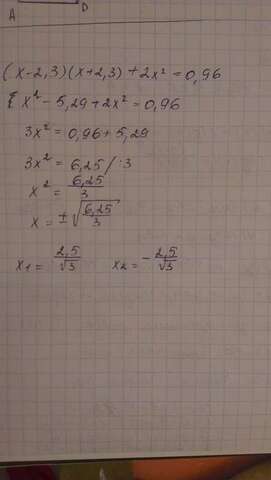 A D
(x-2,3)(x+2,3) + 2x² = 0,96
x² - 5,29 + 2x² = 0,96
3x² = 0,96 + 5,29
3x² = 6,25 / :3
x² = 6,25/3
x = ±√(6,25/3)
x₁ = 2,5/√3 x₂ = -2,5/√3